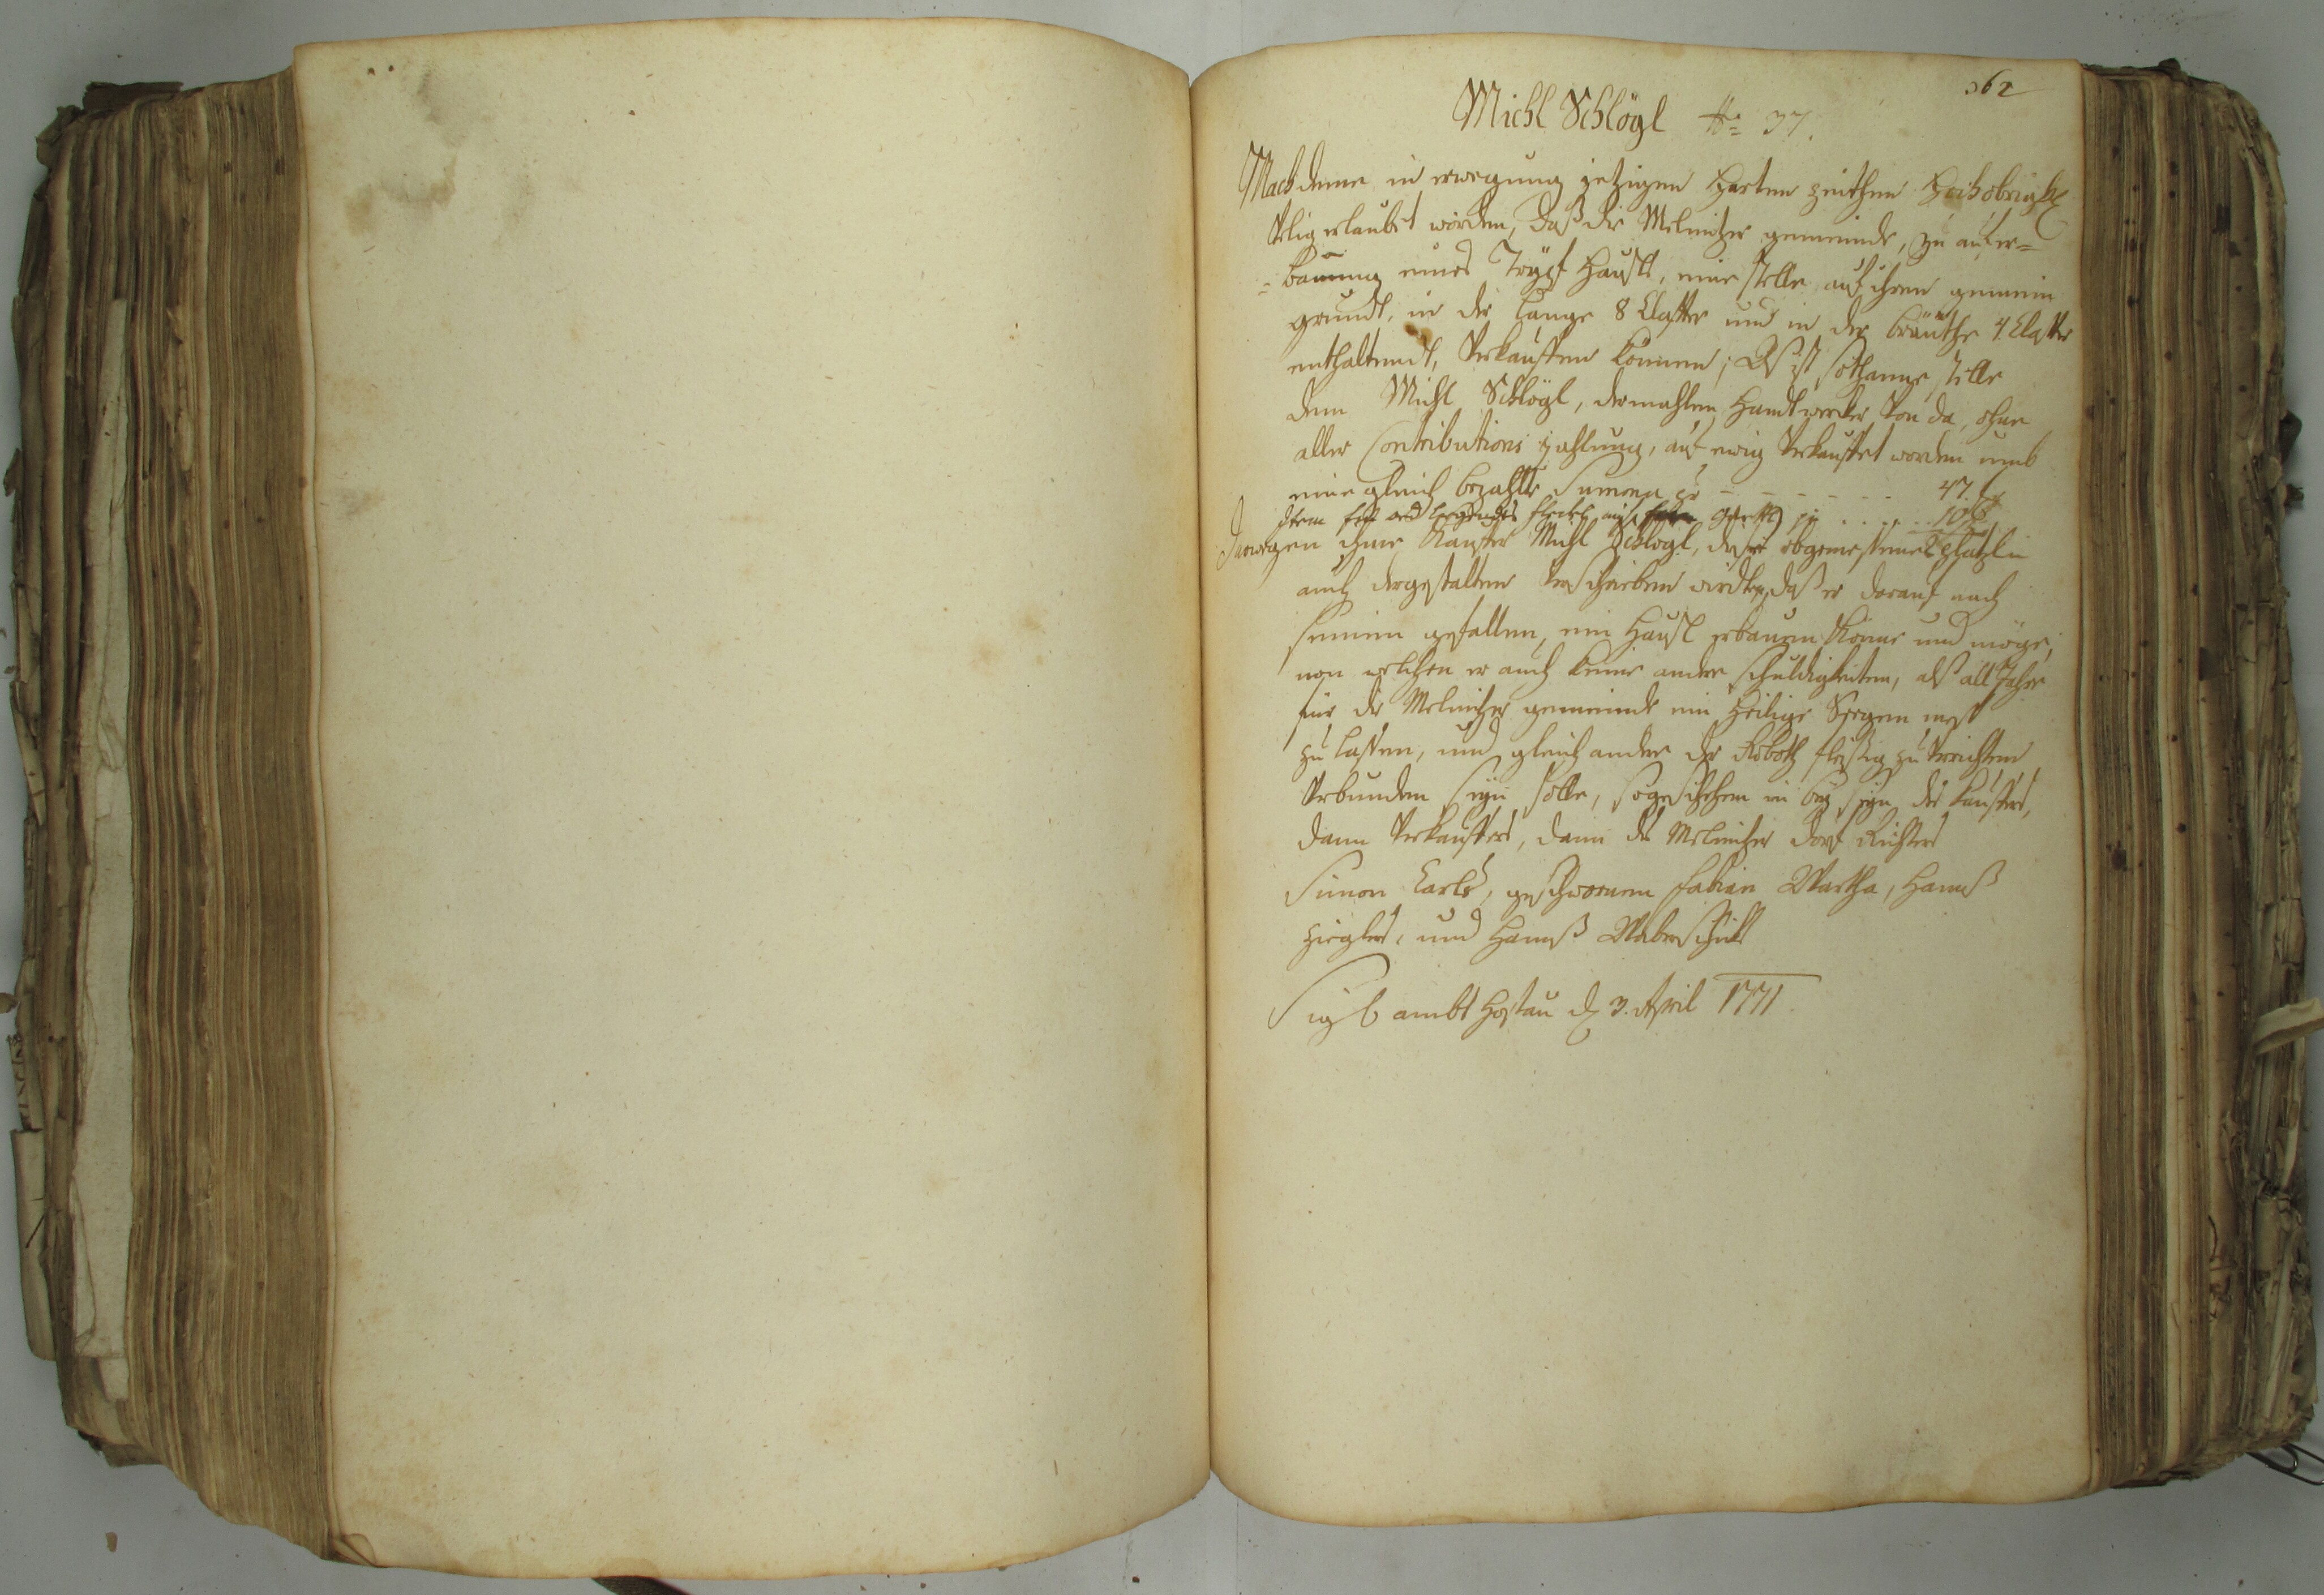 362
Michl Schlögl No 37.
Nach deme in erwegung jetzigen Harten zeithen Hochobrigkeit-
lich erlaubet worden, daß die Melnitzer gemeinde, zu aufer=
=bauung eines Häusls, eine stelle auf ihren gemein
grundt, in der länge 8 Claffter und in der bräuthe 4 Claffter
enthaltendt, Verkauffen können; Als ist sothanne stelle
dem Michl Schlögl, dermahlen Handtwerker von da, ohne
aller Contributions zahlung, auf ewig Verkauffet worden umb
eine gleich bezahlte Summa pr - - - - - - 47 f
Item liegendes fleckl pr . . . . . 10 f
Derowegen ihme Kauffer Michl Schlögl, dieses obgemessene platzl
auch dergestalten verschrieben wirdt, daß er darauf nach
seinem gefallen, ein Häusl erbauen könne und möge,
von welchen er auch keine andere schuldigkeiten, alß all Jahr
für die Melnitzer gemeinde ein Heilige Seegen meß
zu lassen, und gleich andere die Roboth fleißig zu verrichten
Verbunden seyn solle, so geschehen in bey seyn des Kauffers,
dann Verkauffers, dann des Melnitzer dorf Richters
Simon Carls, geschwornen Fabian Wartha, Hannß
Zieglers, und Hannß Waberschickl
Sigl ambt Hostau d 3. April 1771.